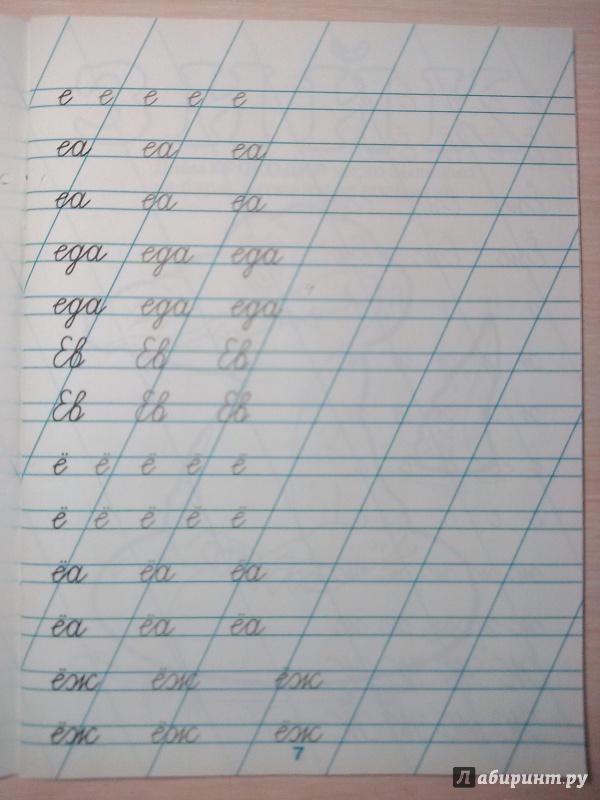 е е е е е
еа еа еа
еа еа еа
еда еда еда
еда еда еда
Ев Ев Ев
Ев Ев Ев
ё ё ё ё ё
ё ё ё ё ё
ёа ёа ёа
ёа ёа ёа
ёж ёж ёж
ёж ёж ёж
7
Лабиринт.ру